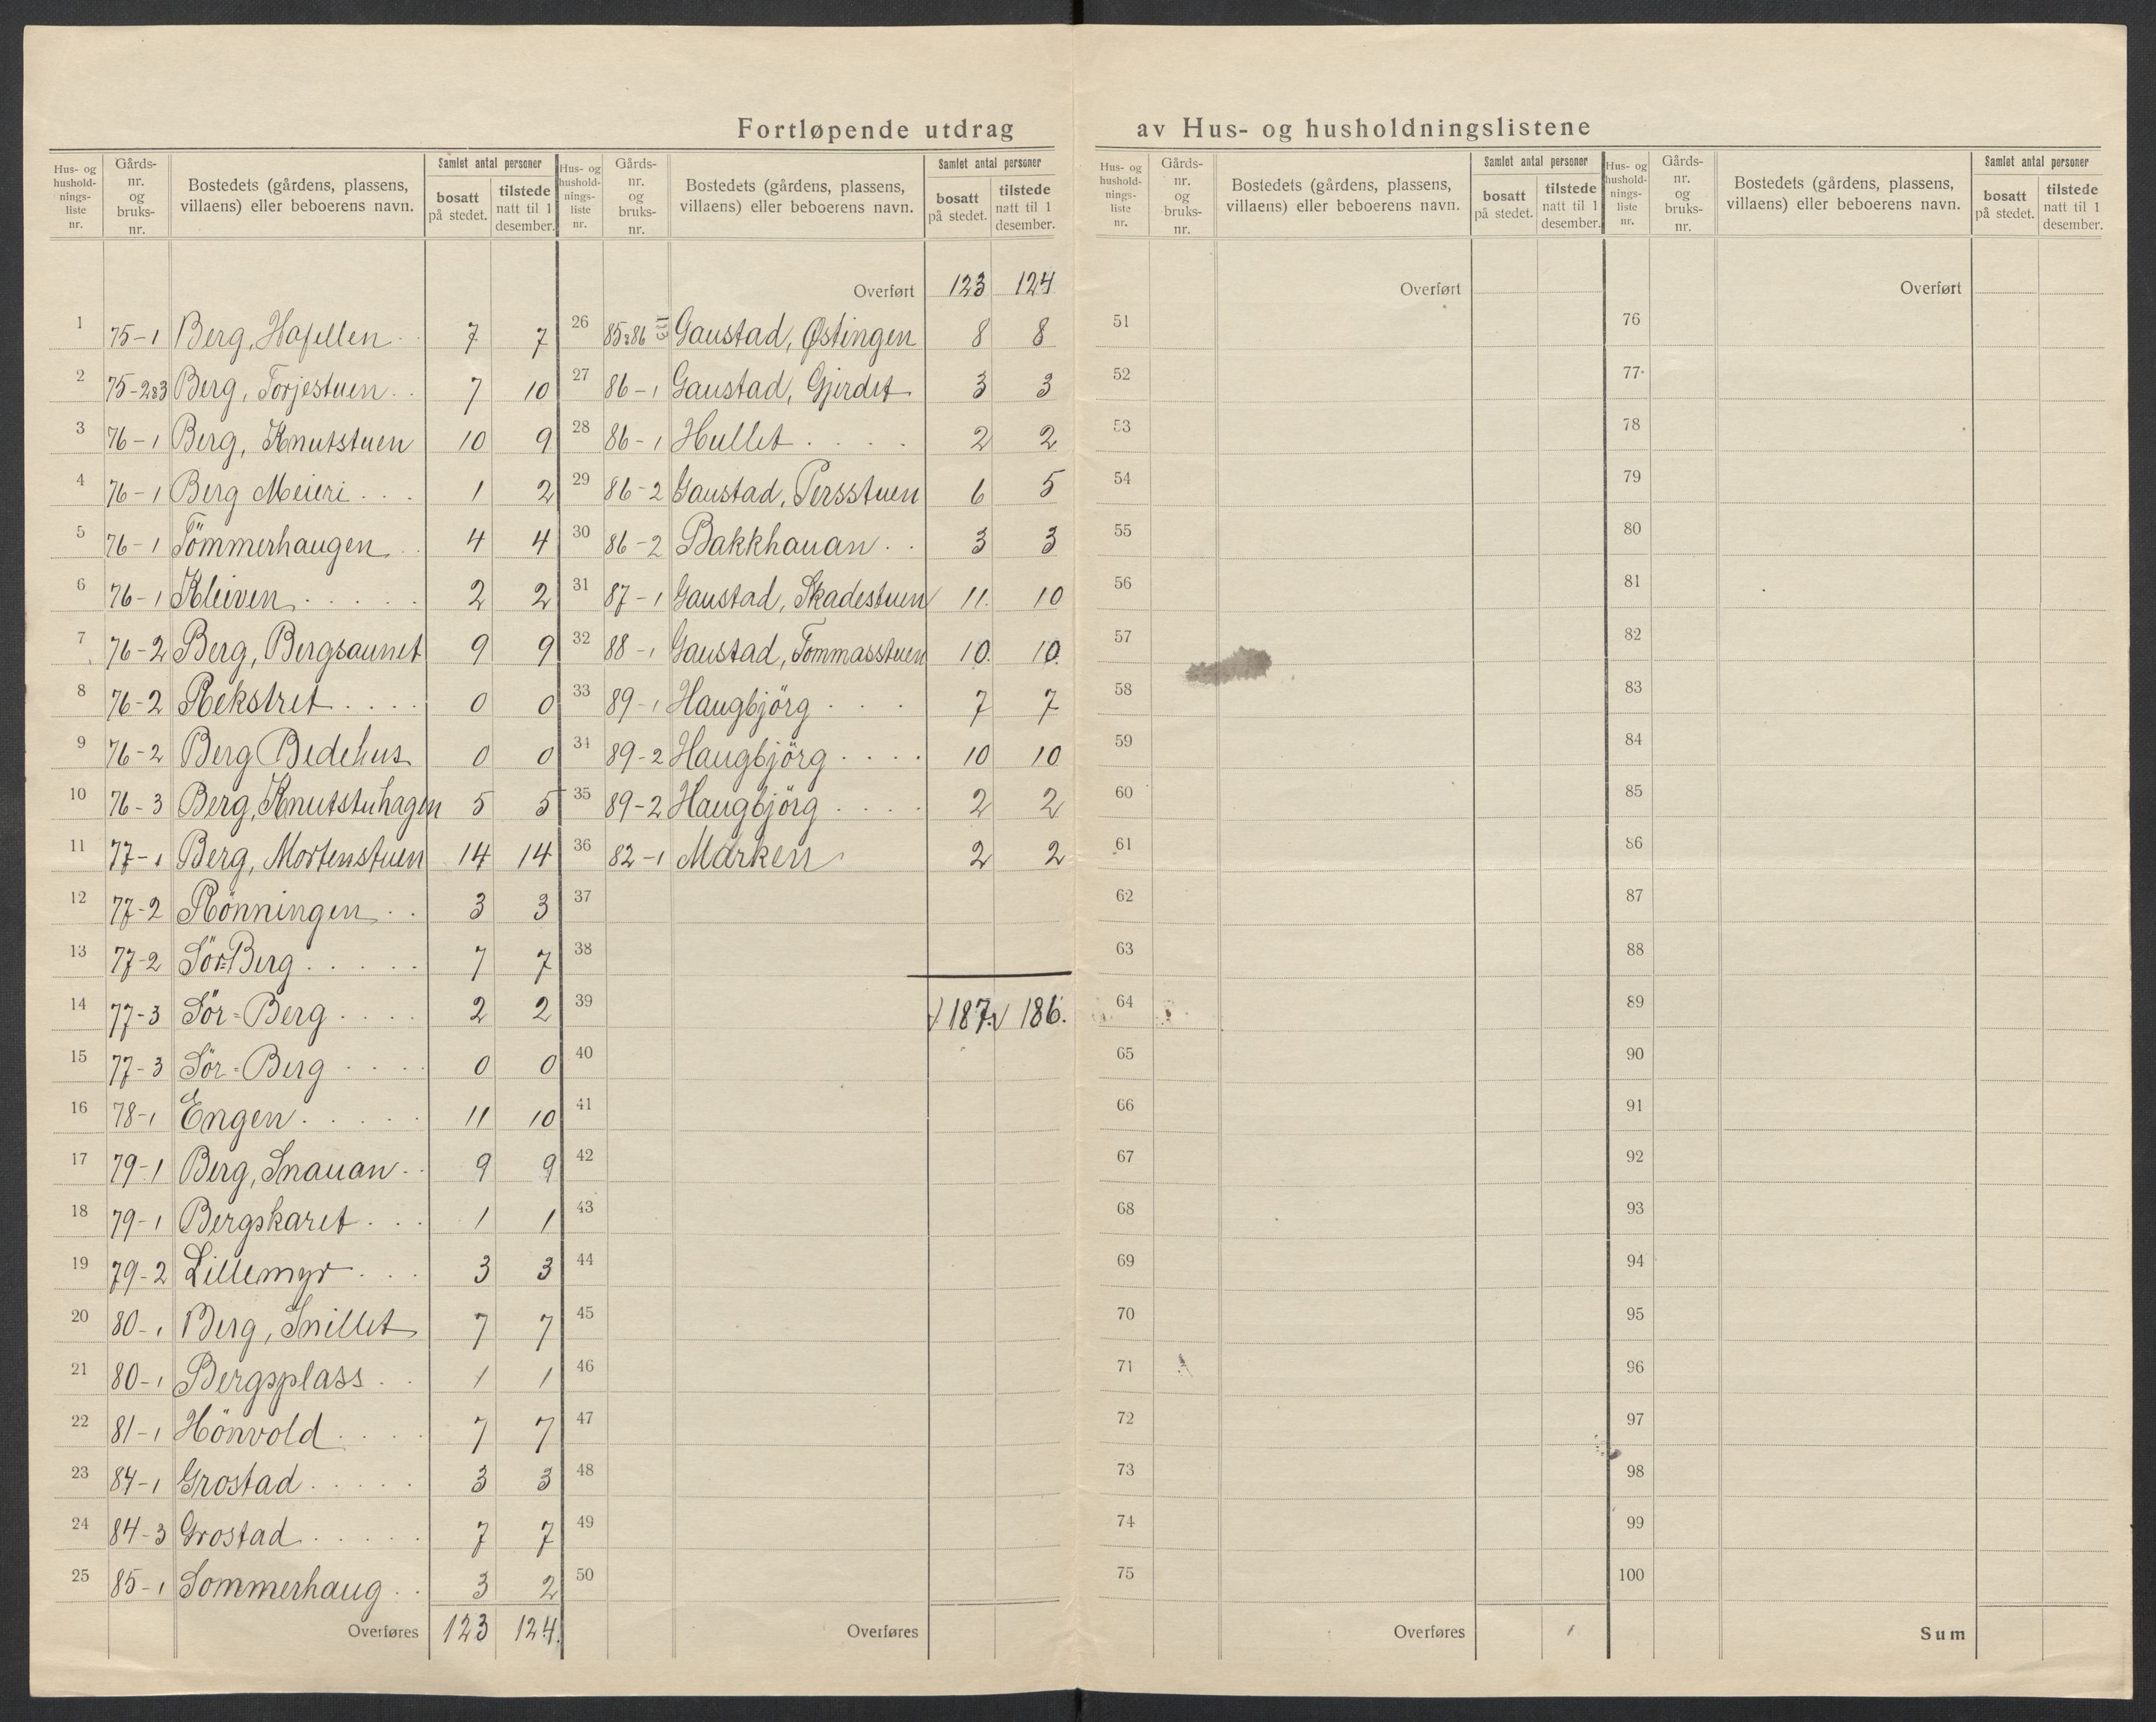 Fortløpende utdrag av Hus- og husholdningslistene
Hus- og husholdnings-liste nr. | Gårds-nr. og bruks-nr. | Bostedets (gårdens, plassens, villaens) eller beboerens navn. | Samlet antal personer | bosatt på stedet. | tilstede natt til 1 desember.
1 75-1 Berg, Hafellen 7 7
2 75-2&3 Berg, Torjestuen . . 7 10
3 76-1 Berg, Knutstuen 10 9
4 76-1 Berg Meieri . . . 1 2
5 76-1 Tömmerhaugen . 4 4
6 76-1 Kleiven . . . . . 2 2
7 76-2 Berg, Bergsaunet 9 9
8 76-2 Rekstret . . . . 0 0
9 76-2 Berg Bedehus 0 0
10 76-3 Berg, Knutstuhagen 5 5
11 77-1 Berg, Mortenstuen 14 14
12 77-2 Rönningen . . 3 3
13 77-2 Sör-Berg . . . . . 7 7
14 77-3 Sör-Berg . . . . 2 2
15 77-3 Sör-Berg . . . . 0 0
16 78-1 Engen . . . . . 11 10
17 79-1 Berg, Snauan . . 9 9
18 79-1 Bergskaret . . . 1 1
19 79-2 Lillemyr . . . 3 3
20 80-1 Berg, Snillet 7 7
21 80-1 Bergsplass . . 1 1
22 81-1 Hönvold . . . . 7 7
23 84-1 Grostad . . . . . 3 3
24 84-3 Grostad . . . . . 7 7
25 85-1 Sommerhaug . . 3 2
Overføres 123 124.
Hus- og husholdnings-liste nr. | Gårds-nr. og bruks-nr. | Bostedets (gårdens, plassens, villaens) eller beboerens navn. | Samlet antal personer | bosatt på stedet. | tilstede natt til 1 desember.
Overført 123 124
26 85&86 Gaustad, Østingen 8 8
27 86-1 Gaustad, Gjerdet 3 3
28 86-1 Hullet . . . . 2 2
29 86-2 Gaustad, Persstuen 6 5
30 86-2 Bakkhauan . . 3 3
31 87-1 Gaustad, Skadestuen 11. 10
32 88-1 Gaustad, Tommasstuen 10. 10.
33 89-1 Haugbjörg . . . 7 7
34 89-2 Haugbjörg . . . . 10 10
35 89-2 Haugbjörg . . . . 2 2
36 82-1 Marken 2 2
37
38
39 √ 187. √ 186.
40
41
42
43
44
45
46
47
48
49
50
Overføres
Hus- og husholdnings-liste nr. | Gårds-nr. og bruks-nr. | Bostedets (gårdens, plassens, villaens) eller beboerens navn. | Samlet antal personer | bosatt på stedet. | tilstede natt til 1 desember.
Overført
51
52
53
54
55
56
57
58
59
60
61
62
63
64
65
66
67
68
69
70
71
72
73
74
75
Overføres
Hus- og husholdnings-liste nr. | Gårds-nr. og bruks-nr. | Bostedets (gårdens, plassens, villaens) eller beboerens navn. | Samlet antal personer | bosatt på stedet. | tilstede natt til 1 desember.
Overført
76
77
78
79
80
81
82
83
84
85
86
87
88
89
90
91
92
93
94
95
96
97
98
99
100
Sum